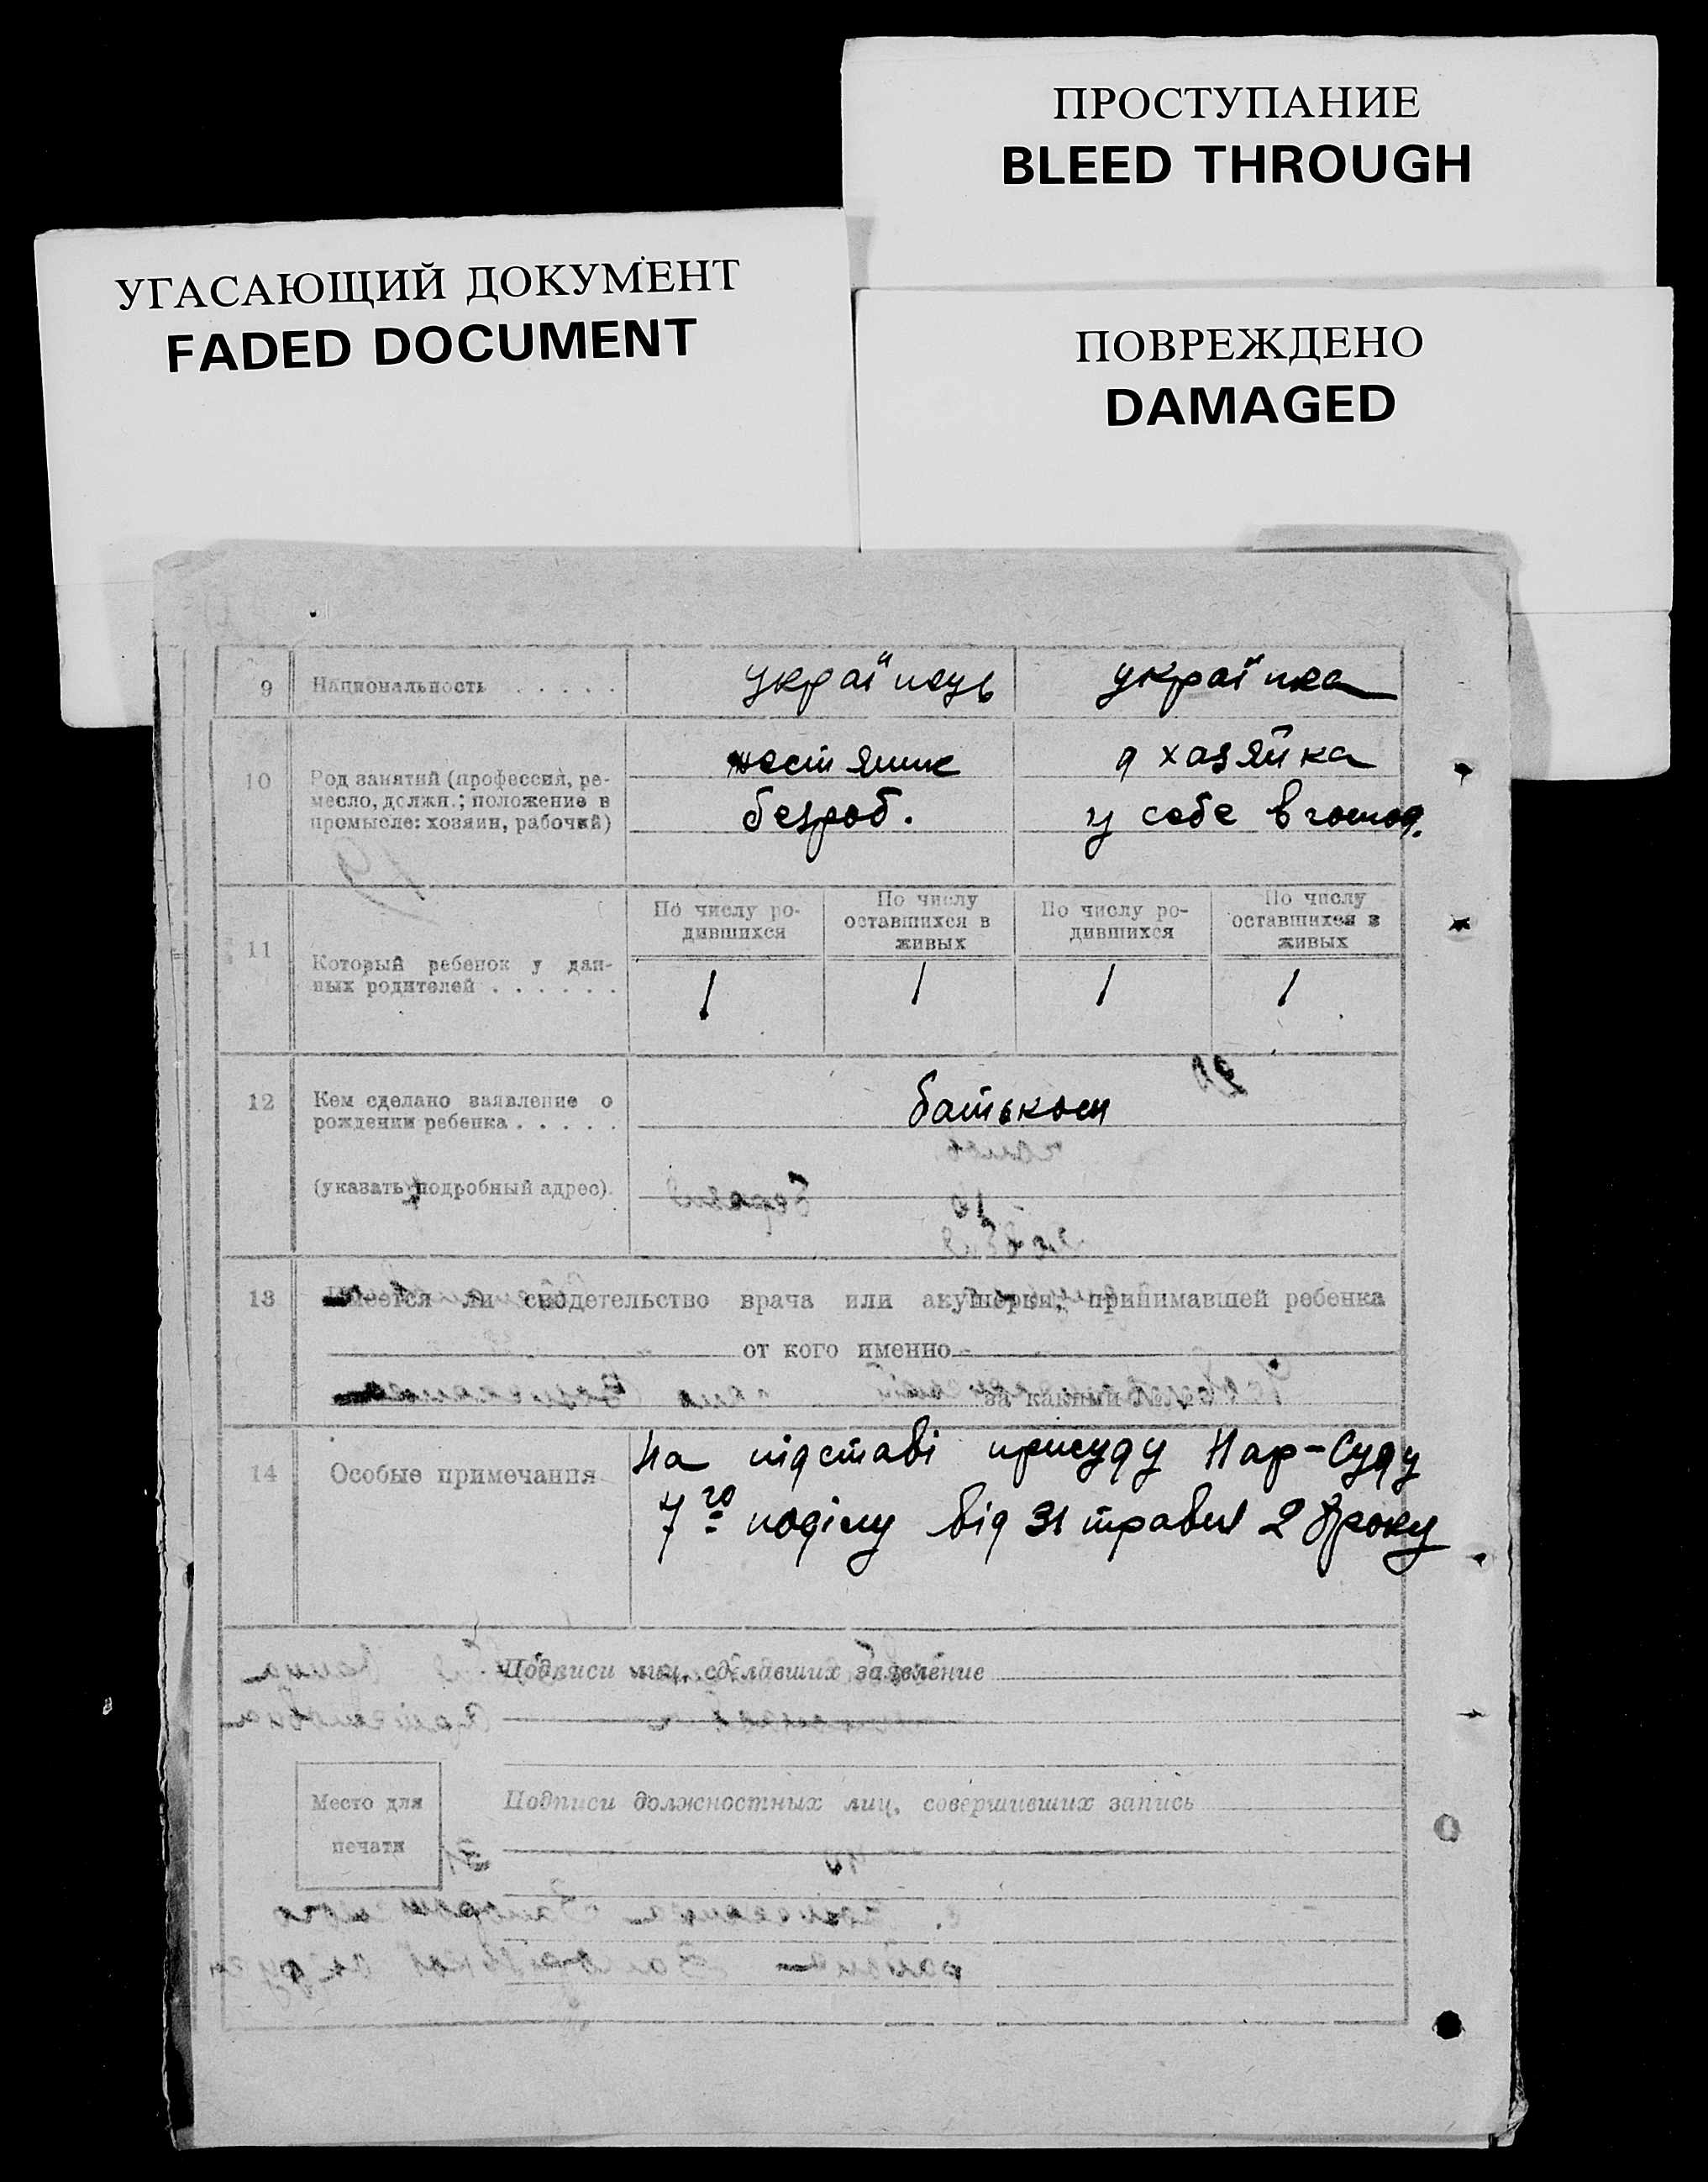 ПРОСТУПАНИЕ
BLEED THROUGH
УГАСАЮЩИЙ ДОКУМЕНТ
FADED DOCUMENT
ПОВРЕЖДЕНО
DAMAGED
9 Национальность . . . . . українець українка
10 Род занятий (профессия, ре-
месло, должн.; положение в
промысле: хозяин, рабочий)
жестяник
безроб.
д хазяйка
у себе в господ.
11 Который ребенок у дан-
ных родителей . . . . . .
По числу ро-
дившихся
По числу
оставшихся в
живых
По числу ро-
дившихся
По числу
оставшихся в
живых
1 1 1 1
12 Кем сделано заявление о
рождении ребенка . . . . .
батьком
(указать подробный адрес)
13 Имеется ли свидетельство врача или акушерки, принимавшей ребенка
от кого именно
за каким №
14 Особые примечания
На підставі присуду Нар-Суду
7го поділу від 31 травня 28 року
Подписи лиц, сделавших заявление
Место для
печати
Подписи должностных лиц, совершивших запись